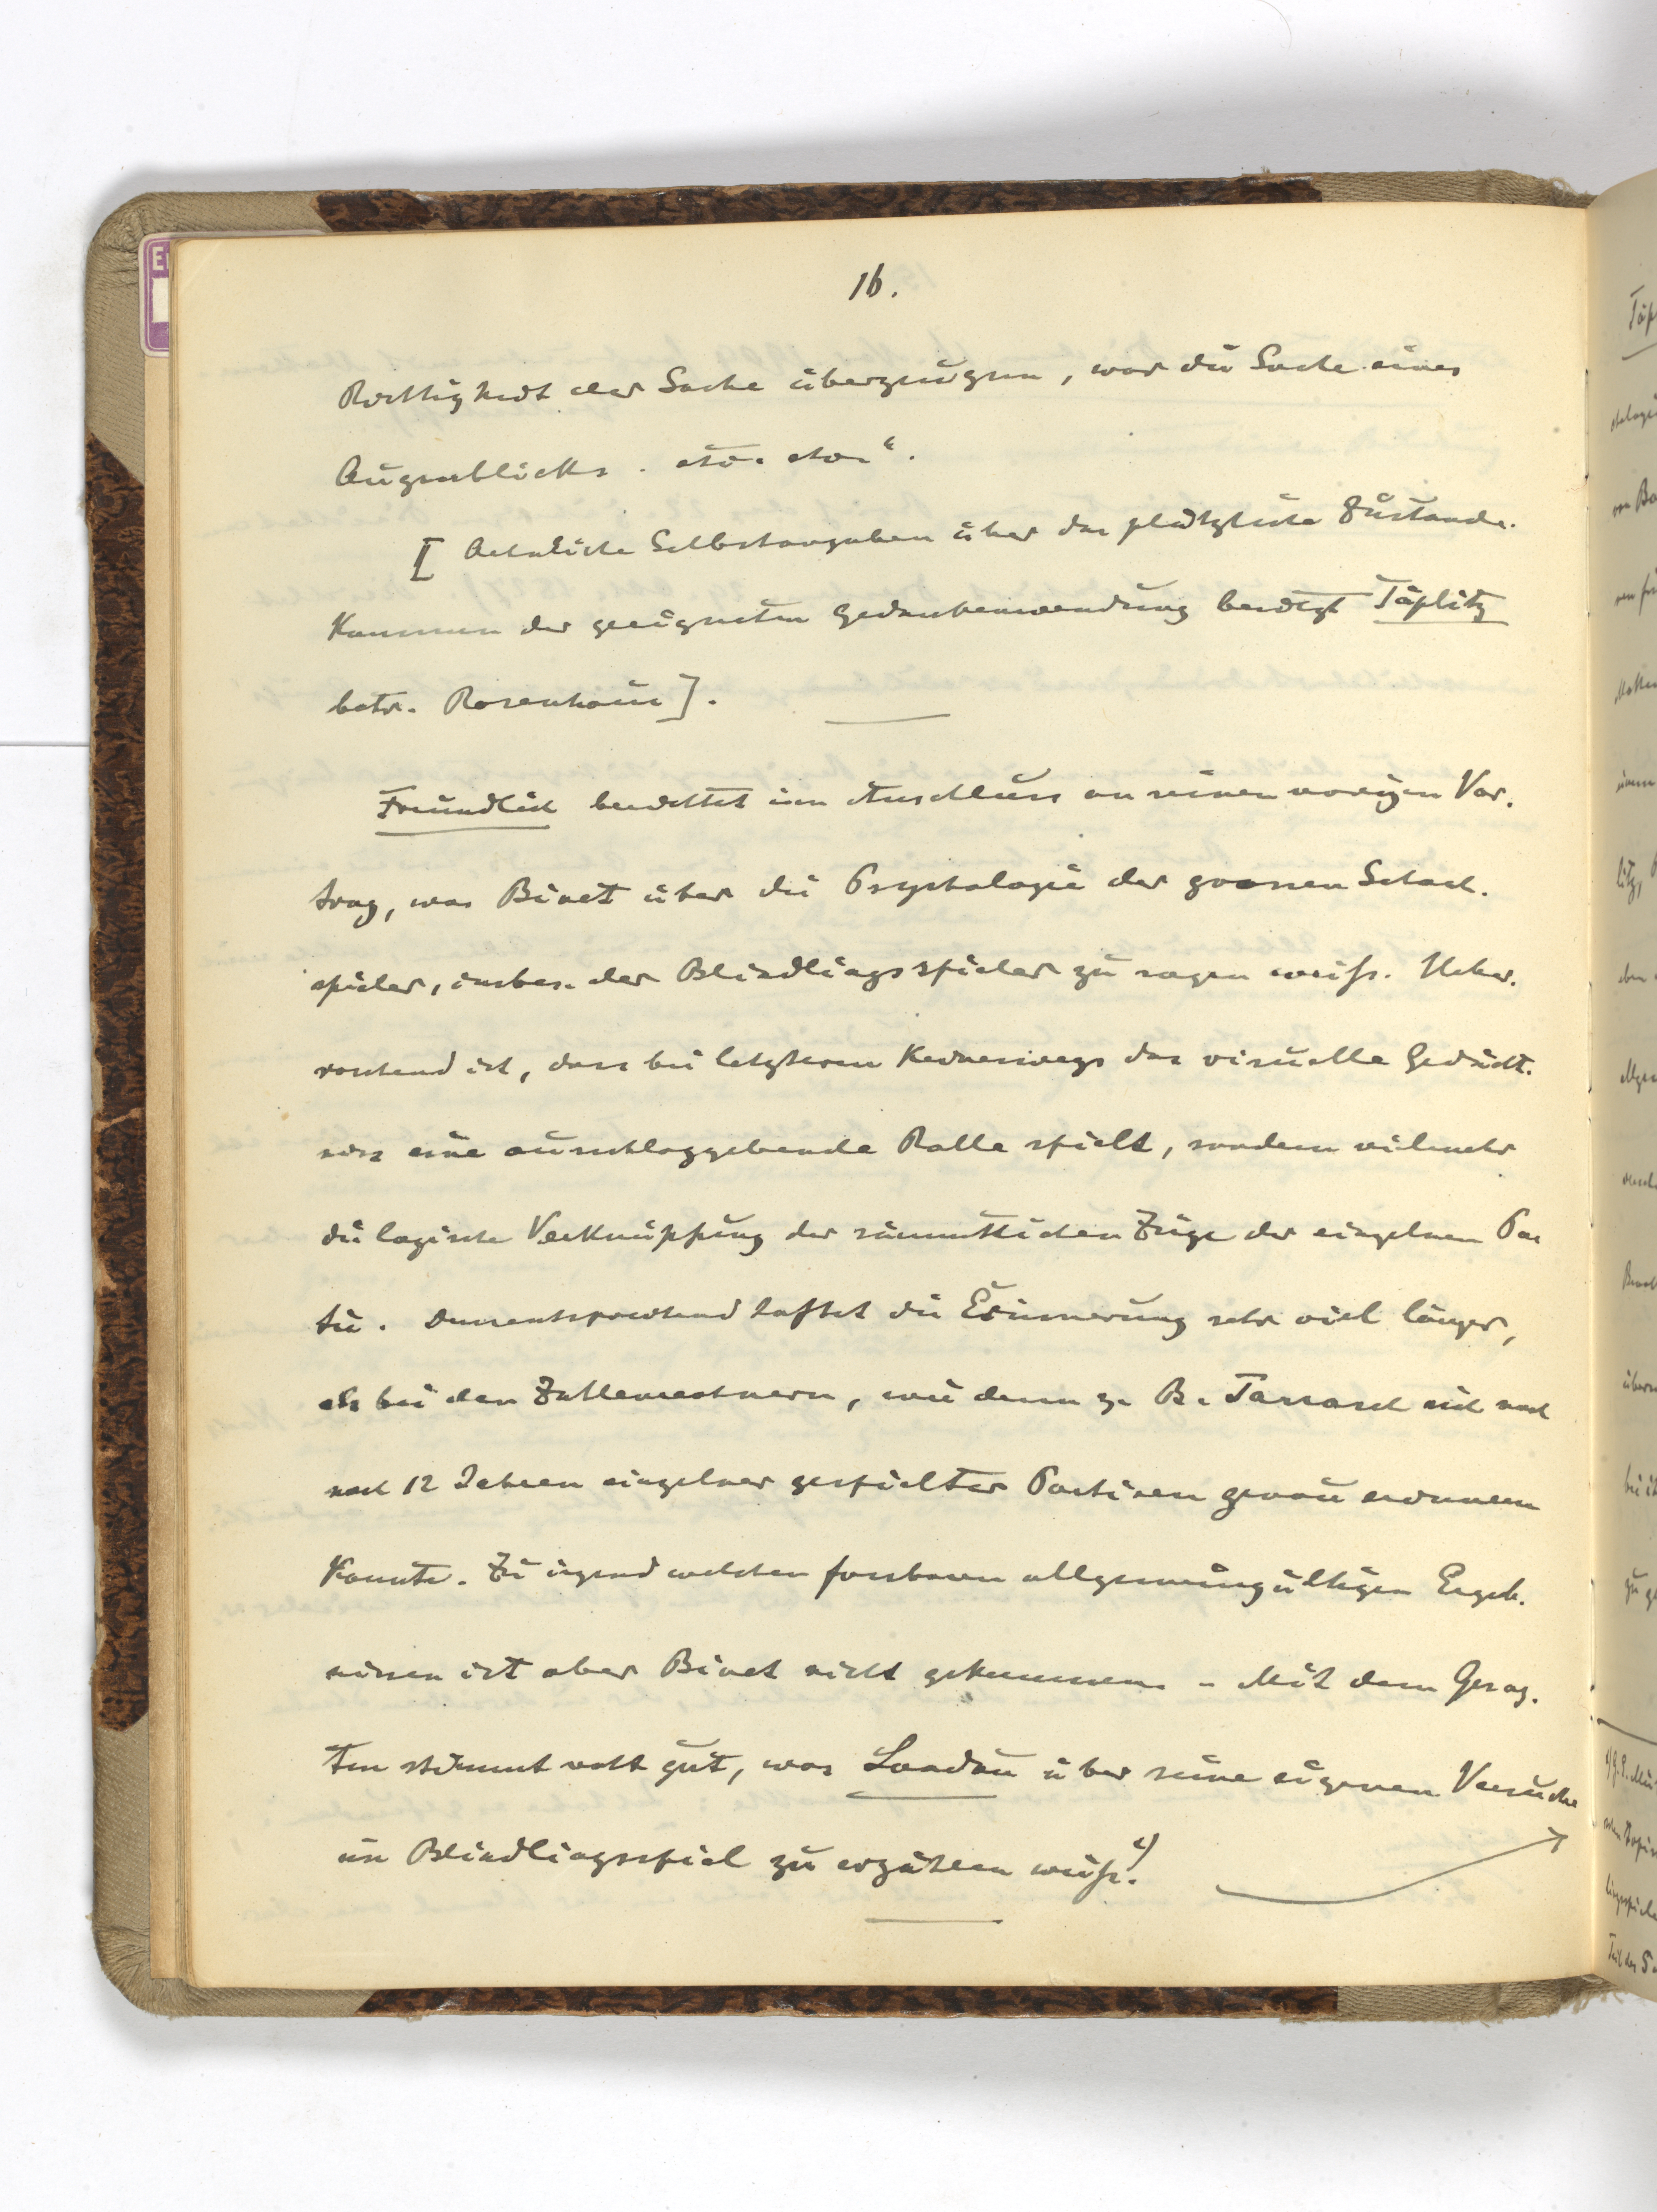 16.
Richtigkeit der Sache überzeugen, war die Sache eines
Augenblicks. etc. etc.“.
[Aehnliche Selbstangaben über das plötzliche Zustande-
kommen der geeigneten Gedankenwendung bringt Töplitz
betr. Rosenhain].
Freundlich berichtet im Anschluss an seinen vorigen Vor-
trag, was Binet über die Psychologie der grossen Schach-
spieler, insbes. der Blindlingsspieler zu sagen weiss. Ueber-
raschend ist, dass bei letzteren keineswegs das visuelle Gedächt-
niss eine ausschlaggebende Rolle spielt, sondern vielmehr
die logische Verknüpfung der sämmtlichen Züge der einzelnen Par
tie. Dementsprechend haftet die Erinnerung sehr viel länger,
als bei den Zahlenrechnern, wie denn z. B. Tarrasch sich noch
nach 12 Jahren einzelner gespielter Partieen genau erinnern
konnte. Zu irgend welchen fassbaren allgemeingültigen Ergeb-
nissen ist aber Binet nicht gekommen. – Mit dem Gesag-
ten stimmt recht gut, was Landau über seine eigenen Versuche
im Blindlingsspiel zu erzählen weiss.